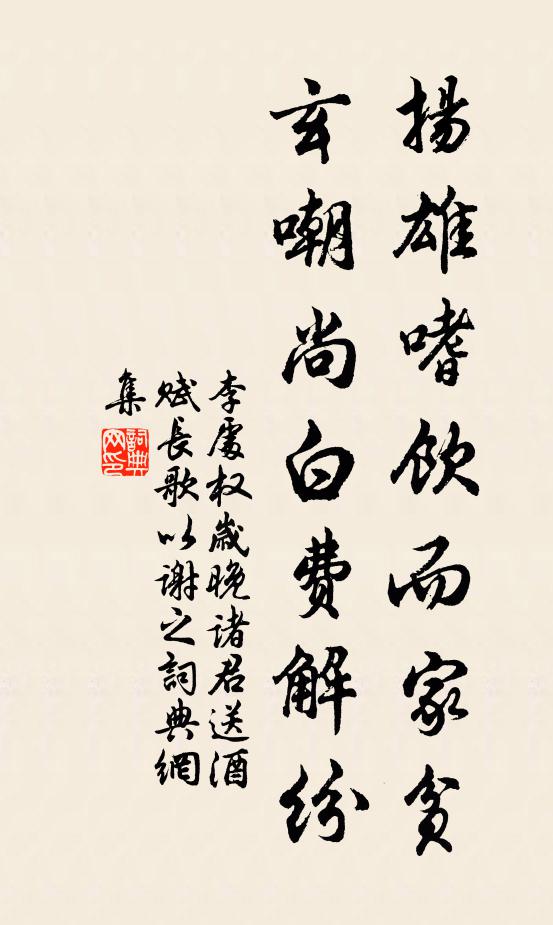 揚雄嗜飲而家貧
玄嘲尚白費解紛
李處权歲晚諸君送酒
賦長歌以謝之詞典網
集
詞典
网印